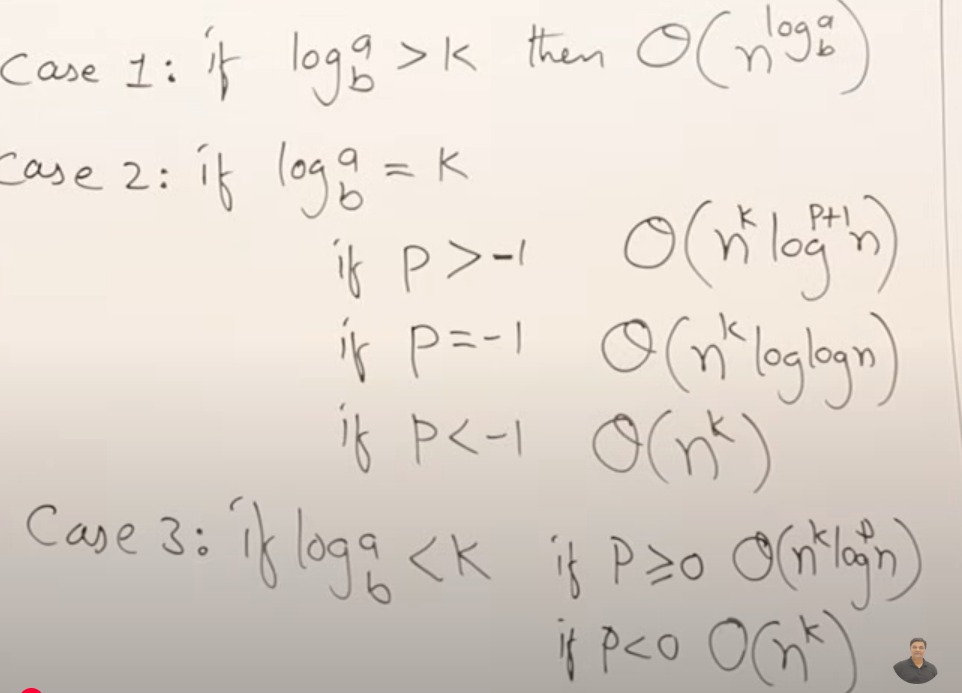 Case 1: if log_b^a > k then Θ(n^(log_b^a))
Case 2: if log_b^a = k
if P > -1 Θ(n^k log^(P+1) n)
if P = -1 Θ(n^k loglogn)
if P < -1 Θ(n^k)
Case 3: if log_b^a < k if P ≥ 0 Θ(n^k log^P n)
if P < 0 O(n^k)